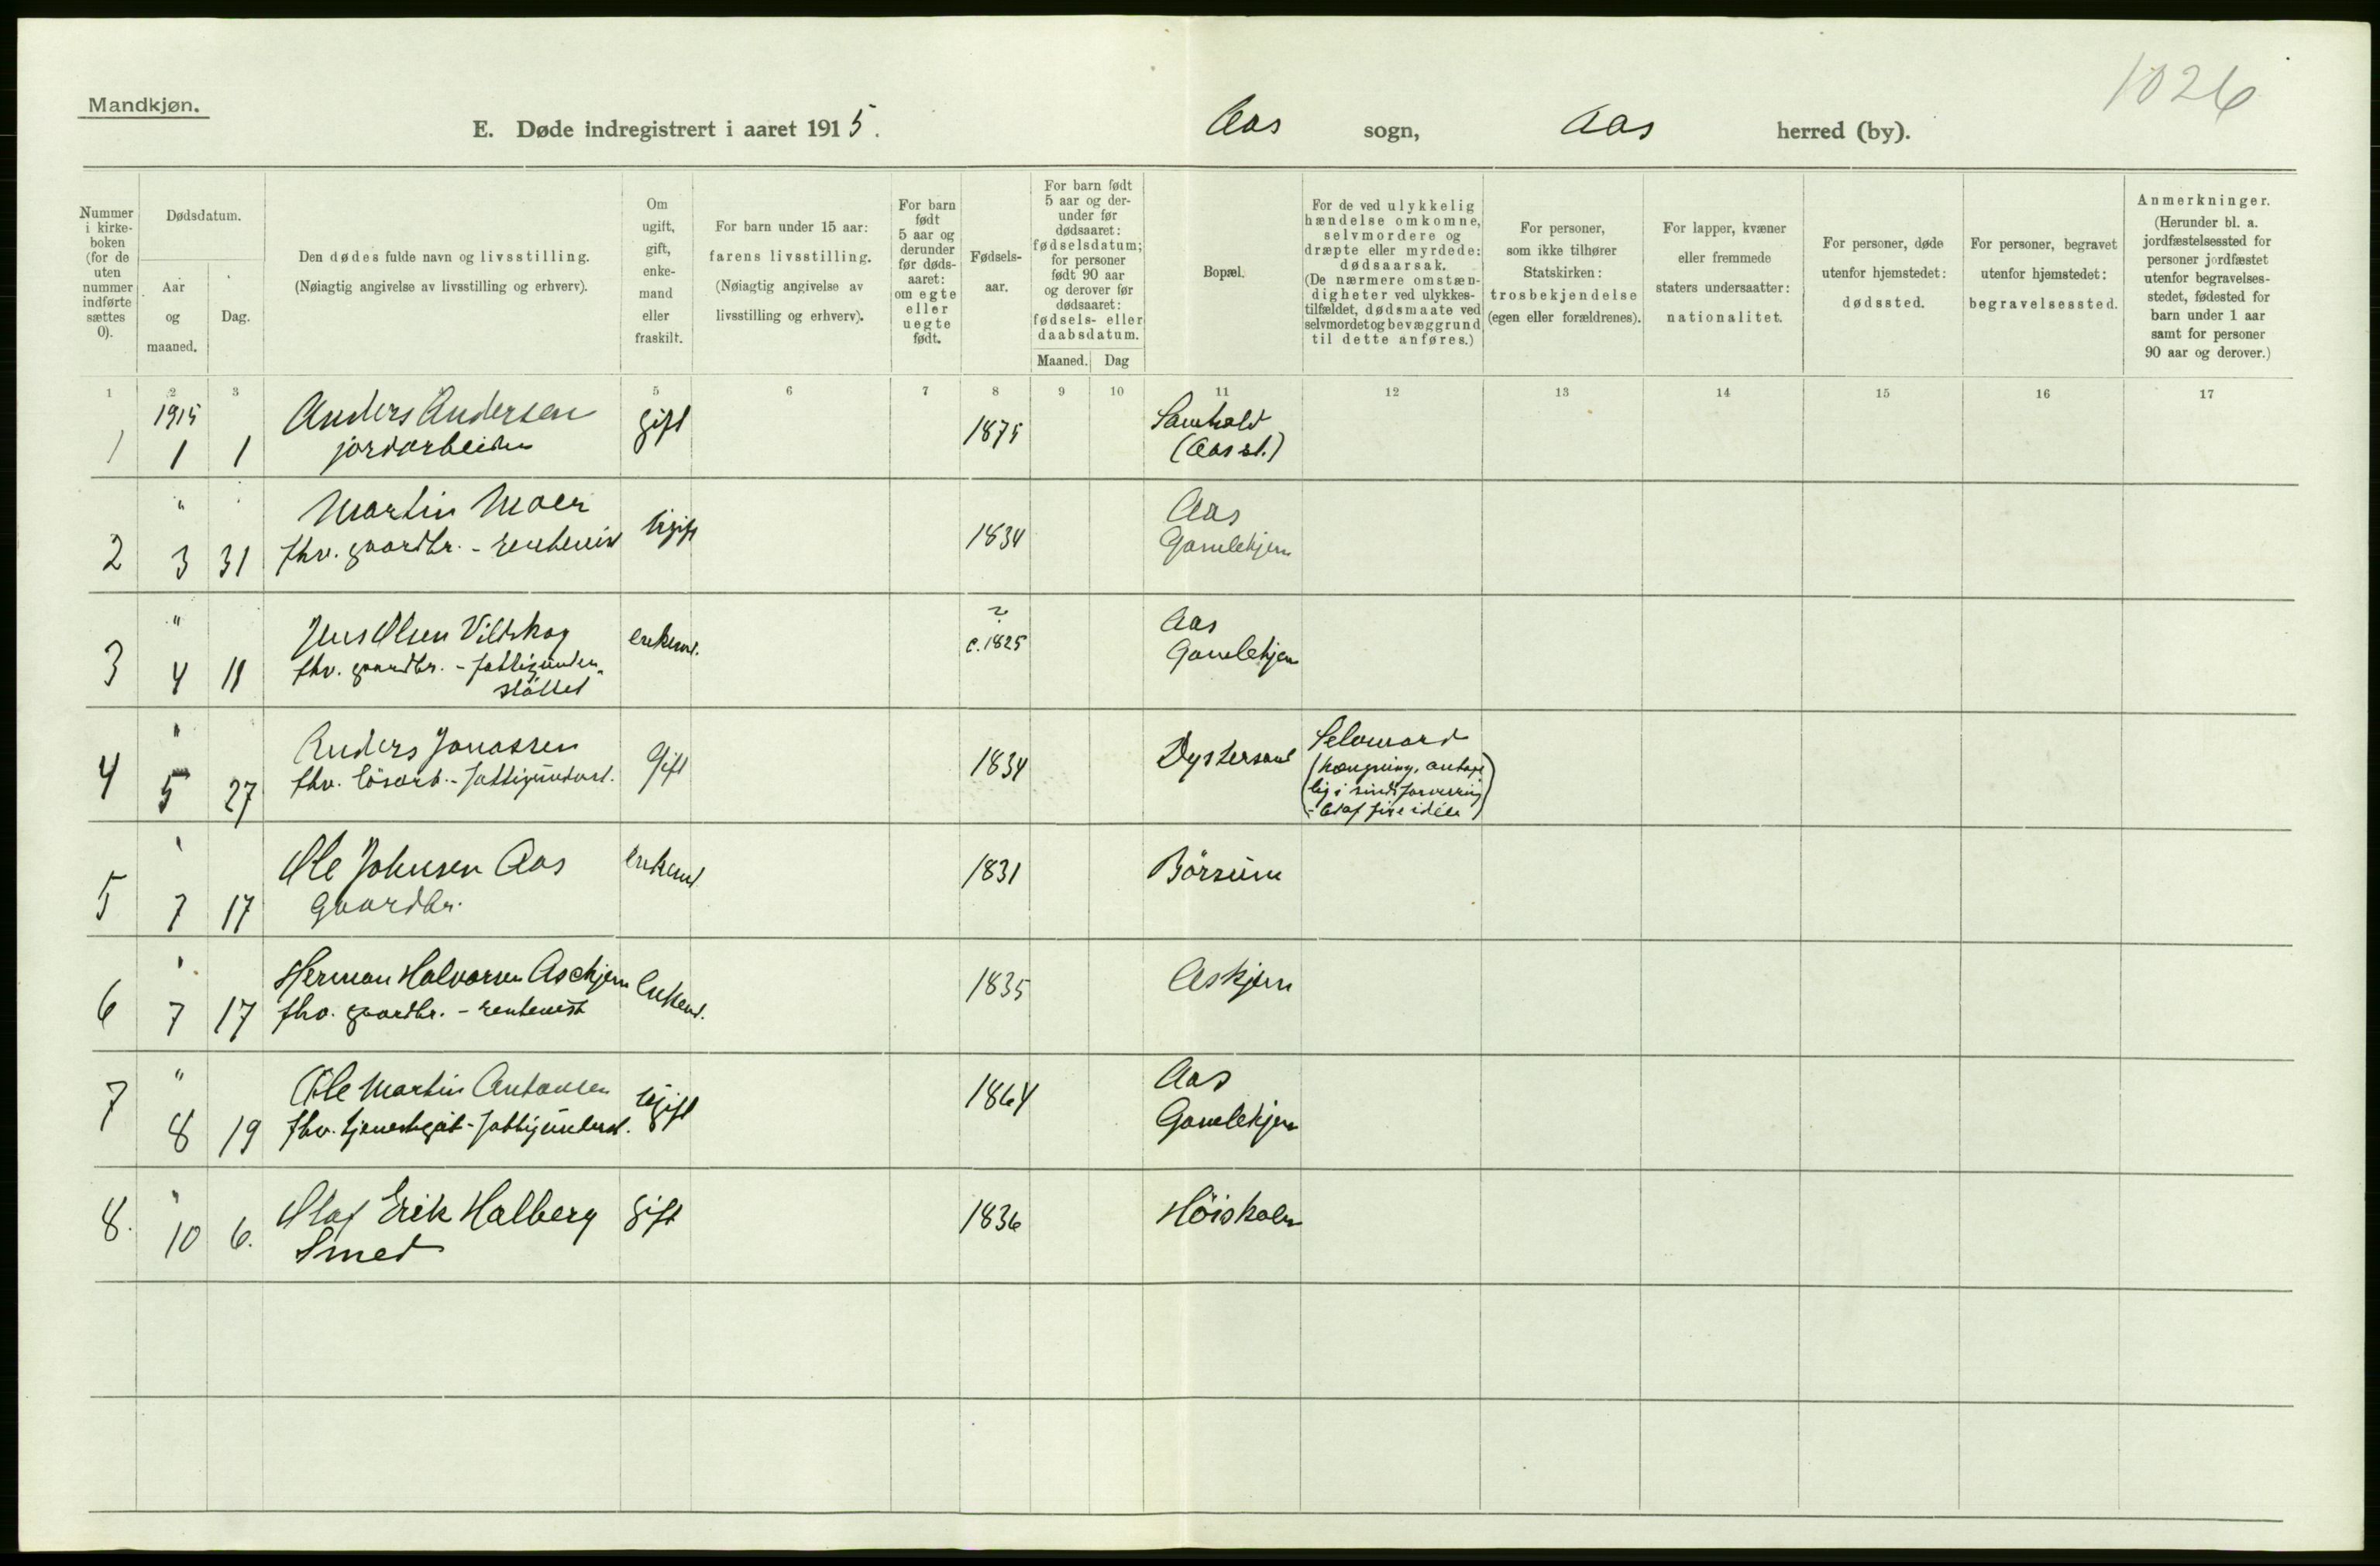 Mandkjøn.
1026
E. Døde indregistrert i aaret 1915.
Aas sogn, Aas herred (by).
Nummer i kirke-boken (for de uten nummer indførte sættes 0).
Dødsdatum.
Aar og maaned.
Dag.
Den dødes fulde navn og livsstilling.
(Nøiagtig angivelse av livsstilling og erhverv).
Om ugift, gift, enke-mand eller fraskilt.
For barn under 15 aar:
farens livsstilling.
(Nøiagtig angivelse av livsstilling og erhverv).
For barn født 5 aar og derunder før døds-aaret: om egte eller uegte født.
Fødsels-aar.
For barn født 5 aar og der-under før dødsaaret: fødselsdatum; for personer født 90 aar og derover før dødsaaret: fødsels- eller daabsdatum.
Maaned.
Dag
Bopæl.
For de ved ulykkelig hændelse omkomne, selvmordere og dræpte eller myrdede: dødsaarsak.
(De nærmere omstæn-digheter ved ulykkes-tilfældet, dødsmaate ved selvmordet og bevæggrund til dette anføres.)
For personer, som ikke tilhører Statskirken: trosbekjendelse (egen eller forældrenes).
For lapper, kvæner eller fremmede staters undersaatter: nationalitet.
For personer, døde utenfor hjemstedet: dødssted.
For personer, begravet utenfor hjemstedet: begravelsessted.
Anmerkninger.
(Herunder bl. a. jordfæstelsessted for personer jordfæstet utenfor begravelses-stedet, fødested for barn under 1 aar samt for personer 90 aar og derover.)
1 2 3 5 6 7 8 9 10 11 12 13 14 15 16 17
1915
1 1 1 Anders Andersen gift 1875
jordarbeider
(Aas st.)
" Martin Moer Aas
2 3 31 fhv. gaardbr. - rentenist Ugift 1834 Gamlehjem
" Jens Olsen Vildskog enkem. ? Aas
3 4 11 fhv. gaardbr. - fattigunder- c. 1825 Gamlehjem
støttet
" Anders Jonassen Gift 1834 Selvmord
4 5 27 fhv. lösarb. - fattigunderst.
(hængning, antage
lig i sindsforvirring
fixe idéer)
" Ole Johnsen Aas enkem. 1831
5 7 17 Gaardbr.
" Herman Halvorsen Aschjem Enkem. 1835 Askjem
6 7 17 fhv. gaardbr. - rentenist
" Ole Martin Antonsen Ugift 1864 Aas
7 8 19 fhv. tjenestegut - fattigunderst. Gamlehjem
" Olaf Erik Halberg gift 1836
8. 10 6. Smed